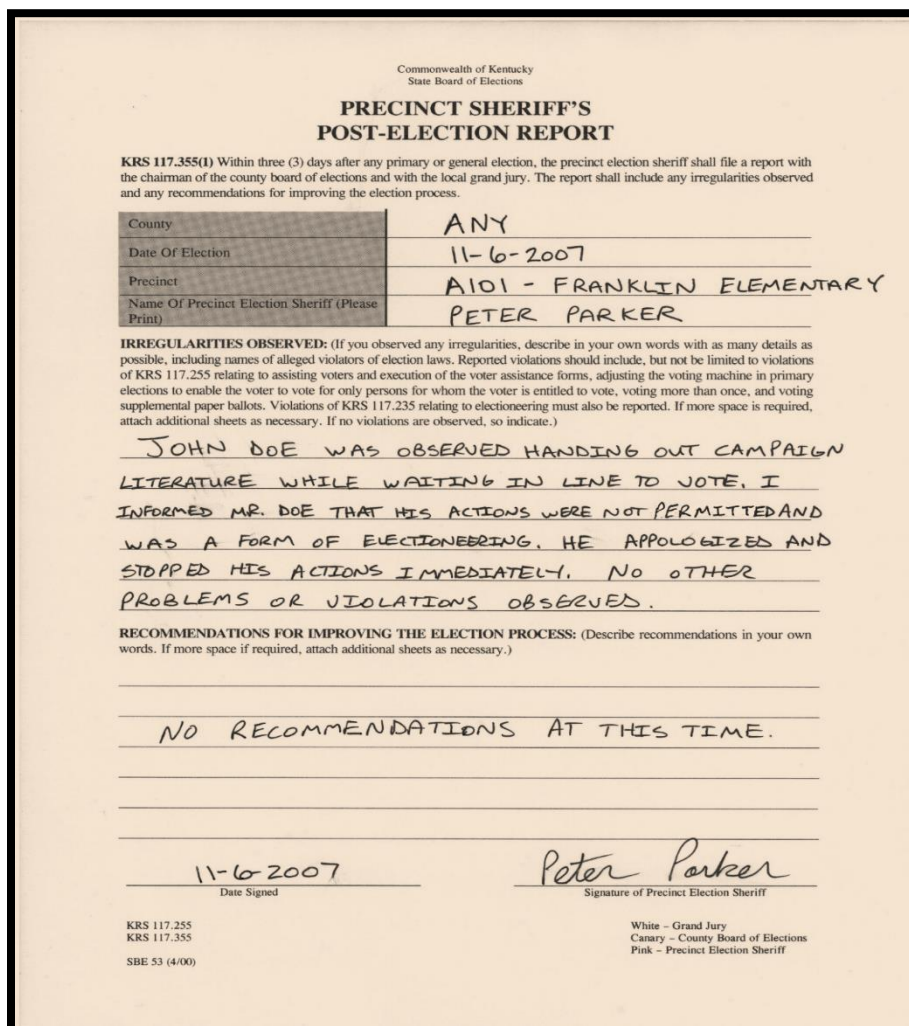 Commonwealth of Kentucky
State Board of Elections
PRECINCT SHERIFF'S
POST-ELECTION REPORT
KRS 117.355(1) Within three (3) days after any primary or general election, the precinct election sheriff shall file a report with
the chairman of the county board of elections and with the local grand jury. The report shall include any irregularities observed
and any recommendations for improving the election process.
County ANY
Date Of Election 11-6-2007
Precinct A101 - FRANKLIN ELEMENTARY
Name Of Precinct Election Sheriff (Please
Print) PETER PARKER
IRREGULARITIES OBSERVED: (If you observed any irregularities, describe in your own words with as many details as
possible, including names of alleged violators of election laws. Reported violations should include, but not be limited to violations
of KRS 117.255 relating to assisting voters and execution of the voter assistance forms, adjusting the voting machine in primary
elections to enable the voter to vote for only persons for whom the voter is entitled to vote, voting more than once, and voting
supplemental paper ballots. Violations of KRS 117.235 relating to electioneering must also be reported. If more space is required,
attach additional sheets as necessary. If no violations are observed, so indicate.)
JOHN DOE WAS OBSERVED HANDING OUT CAMPAIGN
LITERATURE WHILE WAITING IN LINE TO VOTE. I
INFORMED MR. DOE THAT HIS ACTIONS WERE NOT PERMITTED AND
WAS A FORM OF ELECTIONEERING. HE APPOLOGIZED AND
STOPPED HIS ACTIONS IMMEDIATELY. NO OTHER
PROBLEMS OR VIOLATIONS OBSERVED.
RECOMMENDATIONS FOR IMPROVING THE ELECTION PROCESS: (Describe recommendations in your own
words. If more space if required, attach additional sheets as necessary.)
NO RECOMMENDATIONS AT THIS TIME.
11-6-2007 Peter Parker
Date Signed Signature of Precinct Election Sheriff
KRS 117.255
KRS 117.355
SBE 53 (4/00)
White – Grand Jury
Canary – County Board of Elections
Pink – Precinct Election Sheriff